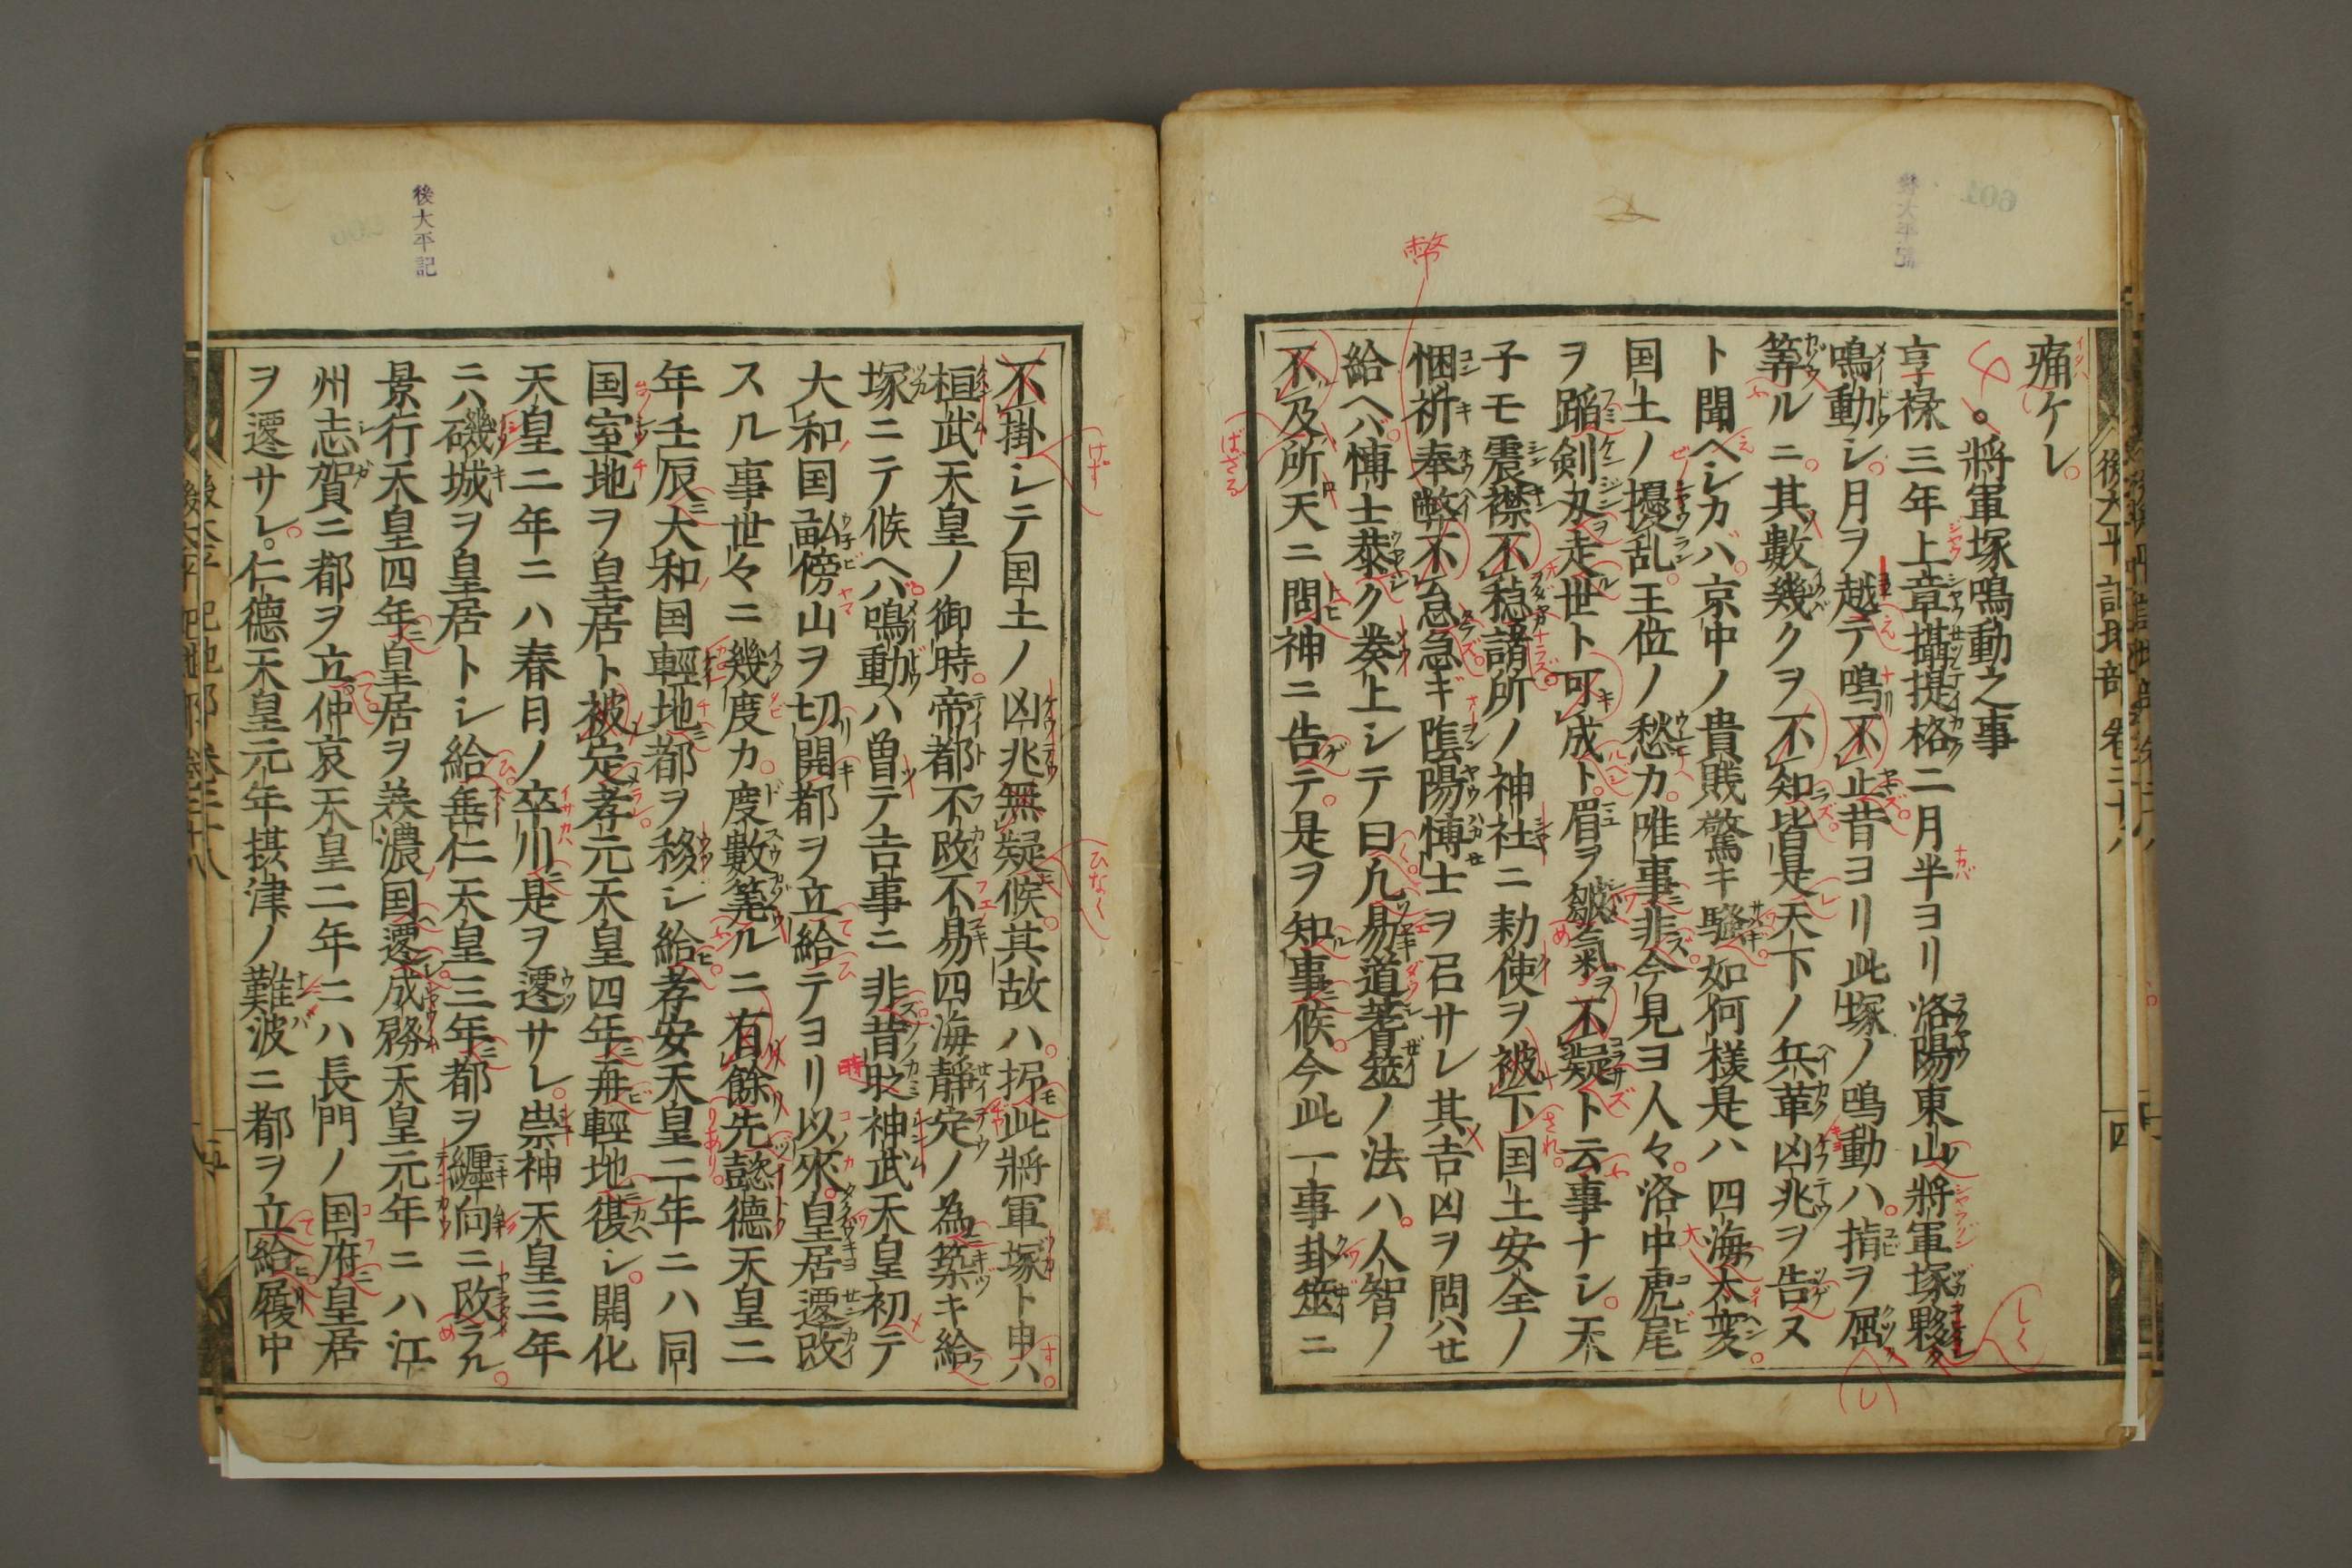 痛ケレ
将軍塚鳴動之事
亨禄三年上章攝提格二月半ヨリ洛陽東山将軍塚夥
鳴動シ月ヲ越テ鳴不止昔ヨリ此塚ノ鳴動ハ指ヲ屈
筭ルニ其數幾クヲ不知皆是天下ノ兵革凶兆ヲ告ス
ト聞ヘシカバ京中ノ貴賎驚キ騒如何様是ハ四海太変
国土ノ擾乱王位ノ愁カ唯事非今見ヨ人々洛中虎尾
ヲ蹈剣刄走世ト可成ト眉ヲ皺氣ヲ不凝ト云事ナシ天
子モ震襟不穏諸所ノ神社ニ勅使ヲ被下国土安全ノ
悃祈奉弊不怠急ギ隂陽博士ヲ召サレ其吉凶ヲ問ハせ
給ヘバ博士恭ク奏上シテ曰凢易道蓍筮ノ法ハ人智ノ
不及所天ニ問神ニ告テ是ヲ知事候今此一事卦筮ニ
不掛シテ国土ノ凶兆無疑候其故ハ抑此將軍塚ト申ハ
桓武天皇ノ御時帝都不改不易四海靜定ノ為築キ給
塚ニテ候ヘハ鳴動ハ曽テ吉事ニ非昔時神武天皇初テ
大和国畝傍山ヲ切開都ヲ立給テヨリ以來皇居遷改
スル事世々ニ幾度カ度數筭ルニ有餘先懿德天皇二
年壬辰大和国輕地都ヲ移シ給孝安天皇二年ニハ同
国室地ヲ皇居ト被定孝元天皇四年再輕地復シ開化
天皇二年ニハ春日ノ卒川是ヲ遷サレ崇神天皇三年
ニハ磯城ヲ皇居トシ給垂仁天皇三年都ヲ纏向ニ改ラル
景行天皇四年皇居ヲ美濃国遷成務天皇元年ニハ江
州志賀ニ都ヲ立仲哀天皇二年ニハ長門ノ国府皇居
ヲ遷サレ仁德天皇元年摂津ノ難波ニ都ヲ立給履中
後太平記地部 巻二十八
四
後大平記
幣